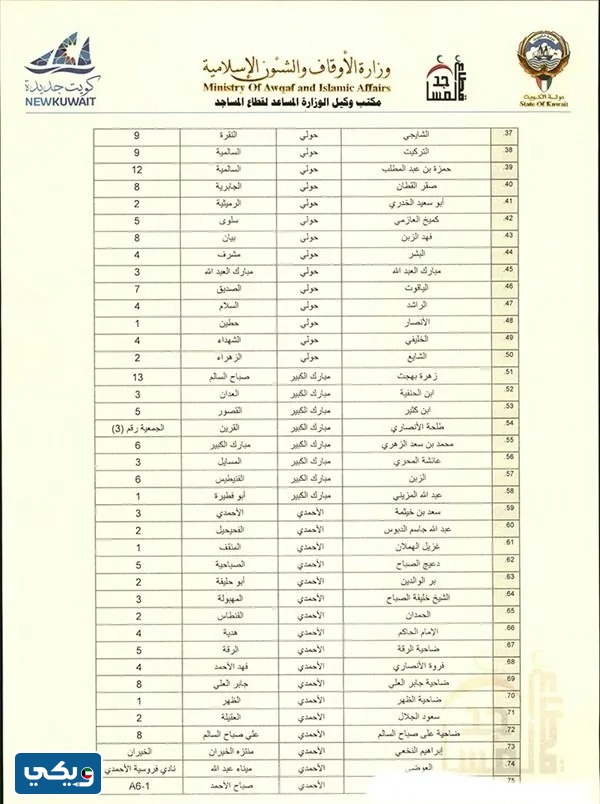 كويت جديدة
NEWKUWAIT
وزارة الأوقاف والشئون الإسلامية
Ministry Of Awqaf and Islamic Affairs
مكتب وكيل الوزارة المساعد لقطاع المساجد
قطاع المساجد
دولة الكويت
State Of Kuwait
37. الشايجي حولي النقرة 9
38. التركيت حولي السالمية 9
39. حمزة بن عبد المطلب حولي السالمية 12
40. صقر القطان حولي الجابرية 8
41. أبو سعيد الخدري حولي الرميثية 2
42. كميخ العازمي حولي سلوى 5
43. فهد الزبن حولي بيان 8
44. البشر حولي مشرف 4
45. مبارك العبد الله حولي مبارك العبد الله 3
46. الياقوت حولي الصديق 7
47. الراشد حولي السلام 4
48. الأنصار حولي حطين 1
49. الخليفي حولي الشهداء 4
50. الشايع حولي الزهراء 2
51. زهرة بهجت مبارك الكبير صباح السالم 13
52. ابن الحنفية مبارك الكبير العدان 3
53. ابن كثير مبارك الكبير القصور 5
54. طلحة الأنصاري مبارك الكبير القرين الجمعية رقم (3)
55. محمد بن سعد الزهري مبارك الكبير مبارك الكبير 6
56. عائشة المحري مبارك الكبير المسايل 3
57. الزبن مبارك الكبير الفنيطيس 6
58. عبد الله المزيني مبارك الكبير أبو فطيرة 1
59. سعد بن خيثمة الأحمدي الأحمدي 3
60. عبد الله جاسم الدبوس الأحمدي الفحيحيل 2
61. غزيل الهملان الأحمدي المنقف 1
62. دعيج الصباح الأحمدي الصباحية 5
63. بر الوالدين الأحمدي أبو حليفة 2
64. الشيخ خليفة الصباح الأحمدي المهبولة 3
65. الحمدان الأحمدي الفنطاس 2
66. الإمام الحاكم الأحمدي هدية 4
67. ضاحية الرقة الأحمدي الرقة 5
68. فروة الأنصاري الأحمدي فهد الأحمد 4
69. ضاحية جابر العلي الأحمدي جابر العلي 8
70. ضاحية الظهر الأحمدي الظهر 1
71. سعود الجلال الأحمدي العقيلة 2
72. ضاحية على صباح السالم الأحمدي علي صباح السالم 8
73. إبراهيم النخعي الأحمدي منتزه الخيران الخيران
74. العوضي الأحمدي ميناء عبد الله نادي فروسية الأحمدي
75. الأحمدي صباح الأحمد A6-1
قطاع المساجد
ويكي